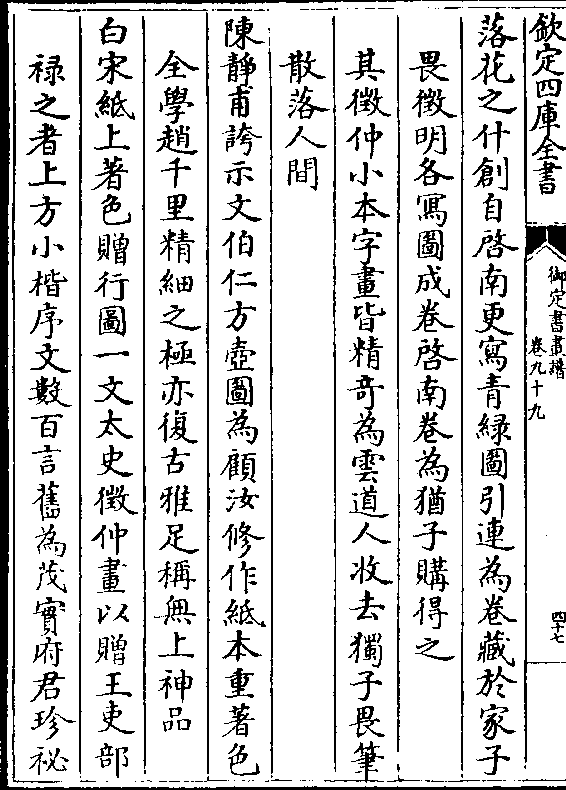 欽定四庫全書
御定書畫譜
卷九十九
四十七
落花之什創自啓南更寫青緑圖引連為卷藏於家子
畏徵明各寫圖成卷啓南卷為猶子購得之
其徵仲小本字畫皆精奇為雲道人收去獨子畏筆
散落人間
陳靜甫誇示文伯仁方壺圖為顧汝修作紙本重著色
全學趙千里精細之極亦復古雅足稱無上神品
白宋紙上著色贈行圖一文太史徵仲畫以贈王吏部
禄之者上方小楷序文數百言舊為茂實府君珍祕